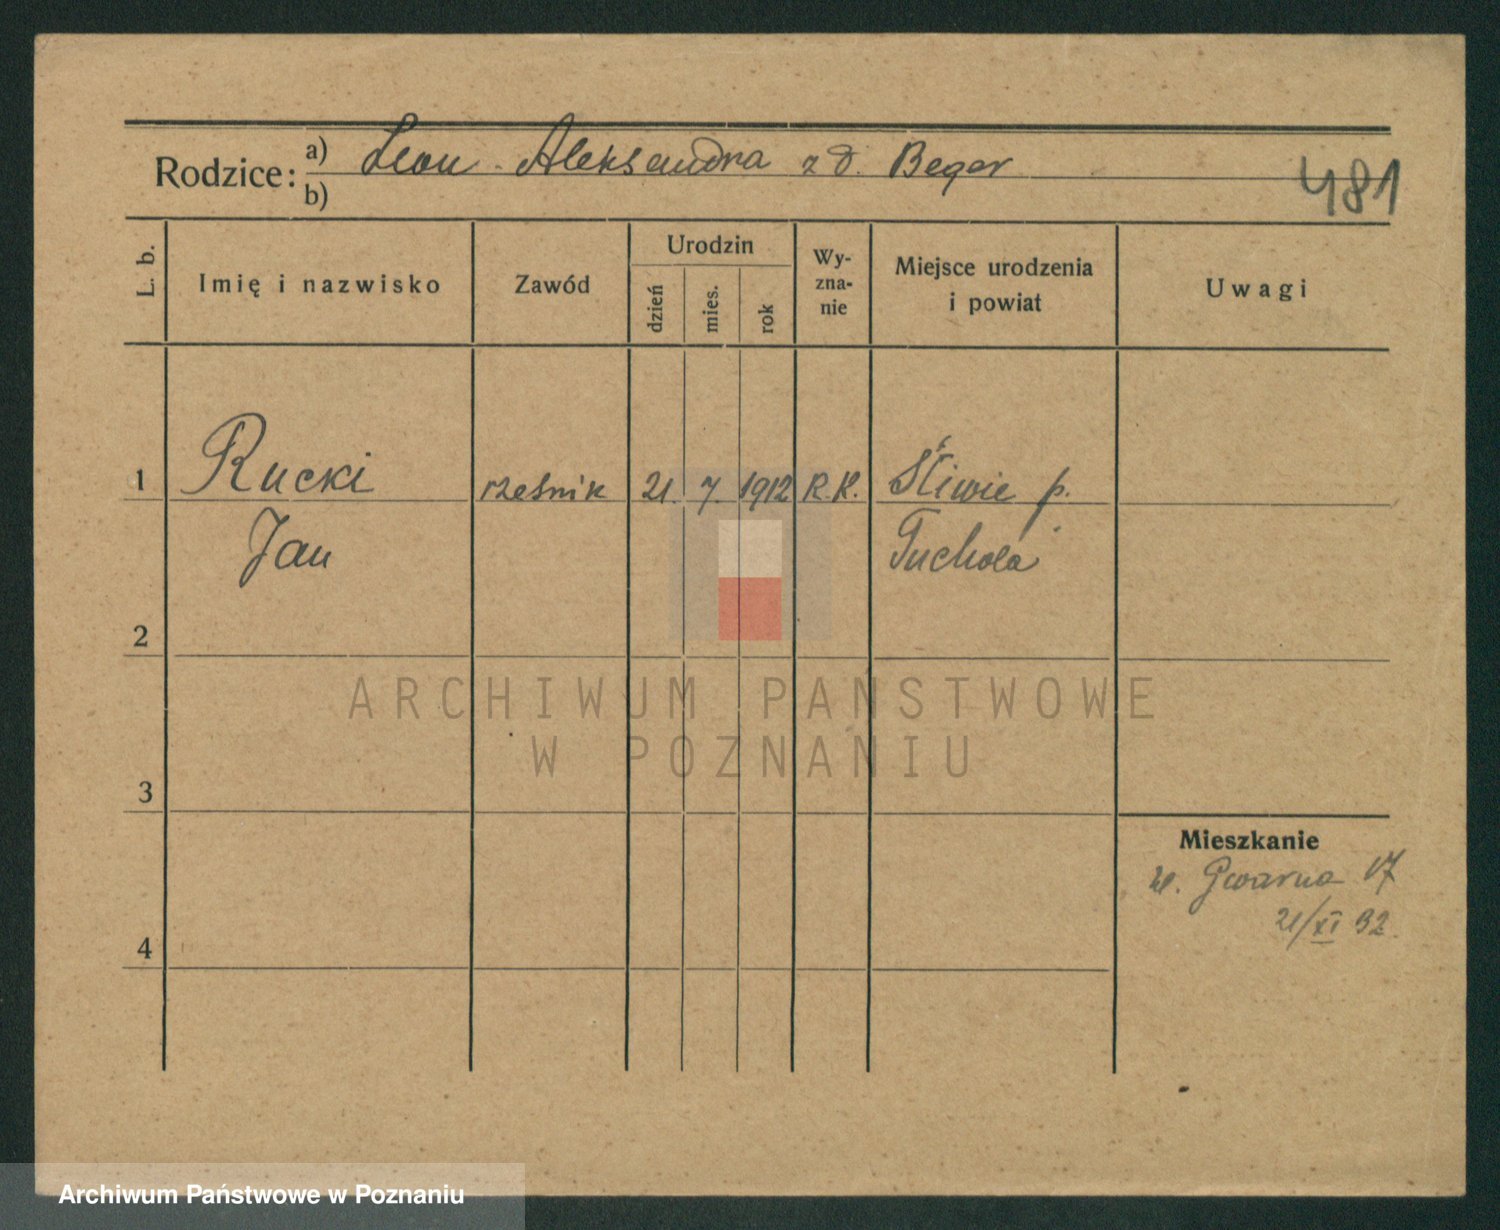 Rodzice: a) Leon - Aleksandra z d. Beger
b)
481
L. b.
Imię i nazwisko
Zawód
Urodzin
dzień
mies.
rok
Wy-
zna-
nie
Miejsce urodzenia
i powiat
Uwagi
1 Rucki rzeźnik 21. 7. 1912 R.K. Śliwie p.
Jan Tuchola
2
3
4
Mieszkanie
ul. Gwarna 17
21/XI 32.
ARCHIWUM PAŃSTWOWE
W POZNANIU
Archiwum Państwowe w Poznaniu